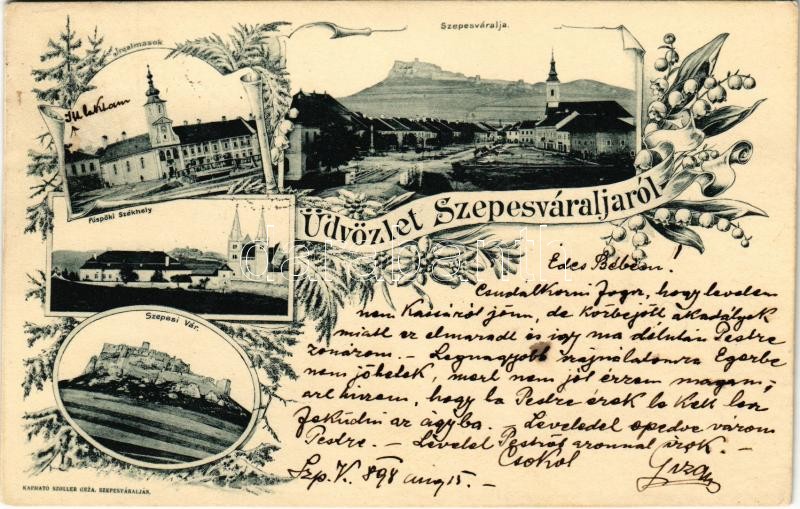 Irgalmasok
Szepesváralja.
Itt laktam
Püspöki Székhely
Szepesi Vár.
Üdvözlet Szepesváraljaról
Édes Bébém.
Csudálkozni fogsz, hogy levelem
nem Kassáról jönn, de közbejött akadályok
miatt ez elmaradt és így ma délután Pestre
– Legnagyobb sajnálatomra Egerbe
nem jöhetek, mert nem jól érzem magam,
azt hiszem, hogy ha Pestre érek le kell
feküdni az ágyba. – Leveledet epedve várom
Pestre. – Levelet Pestről azonnal írok. –
Csókol Géza
Szp.V. 898 aug 15. –
KAPHATÓ SZÓLLER GÉZA, SZEPESVÁRALJÁN.
darabanth